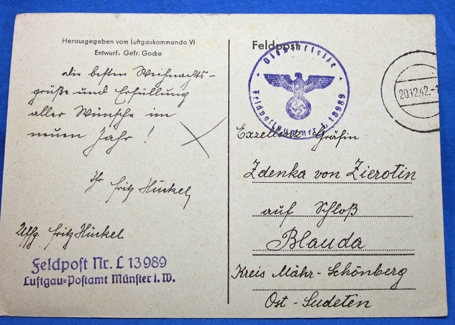 Herausgegeben vom Luftgaukommando VI
Entwurf: Gefr. Gocke
die besten Weihnachts-
grüße und Erfüllung
aller Wünsche im
neuen Jahr!
Ihr Fritz Hückel
Uffz. Fritz Hückel
Feldpost Nr. L 13989
Luftgau-Postamt Münster i. W.
Feldpost
Dienststelle
Feldpostnummer L 13989
20.12.42.
Exzellenz Gräfin
Zdenka von Zierotin
auf Schloß
Blauda
Kreis Mähr-Schönberg
Ost-Sudeten